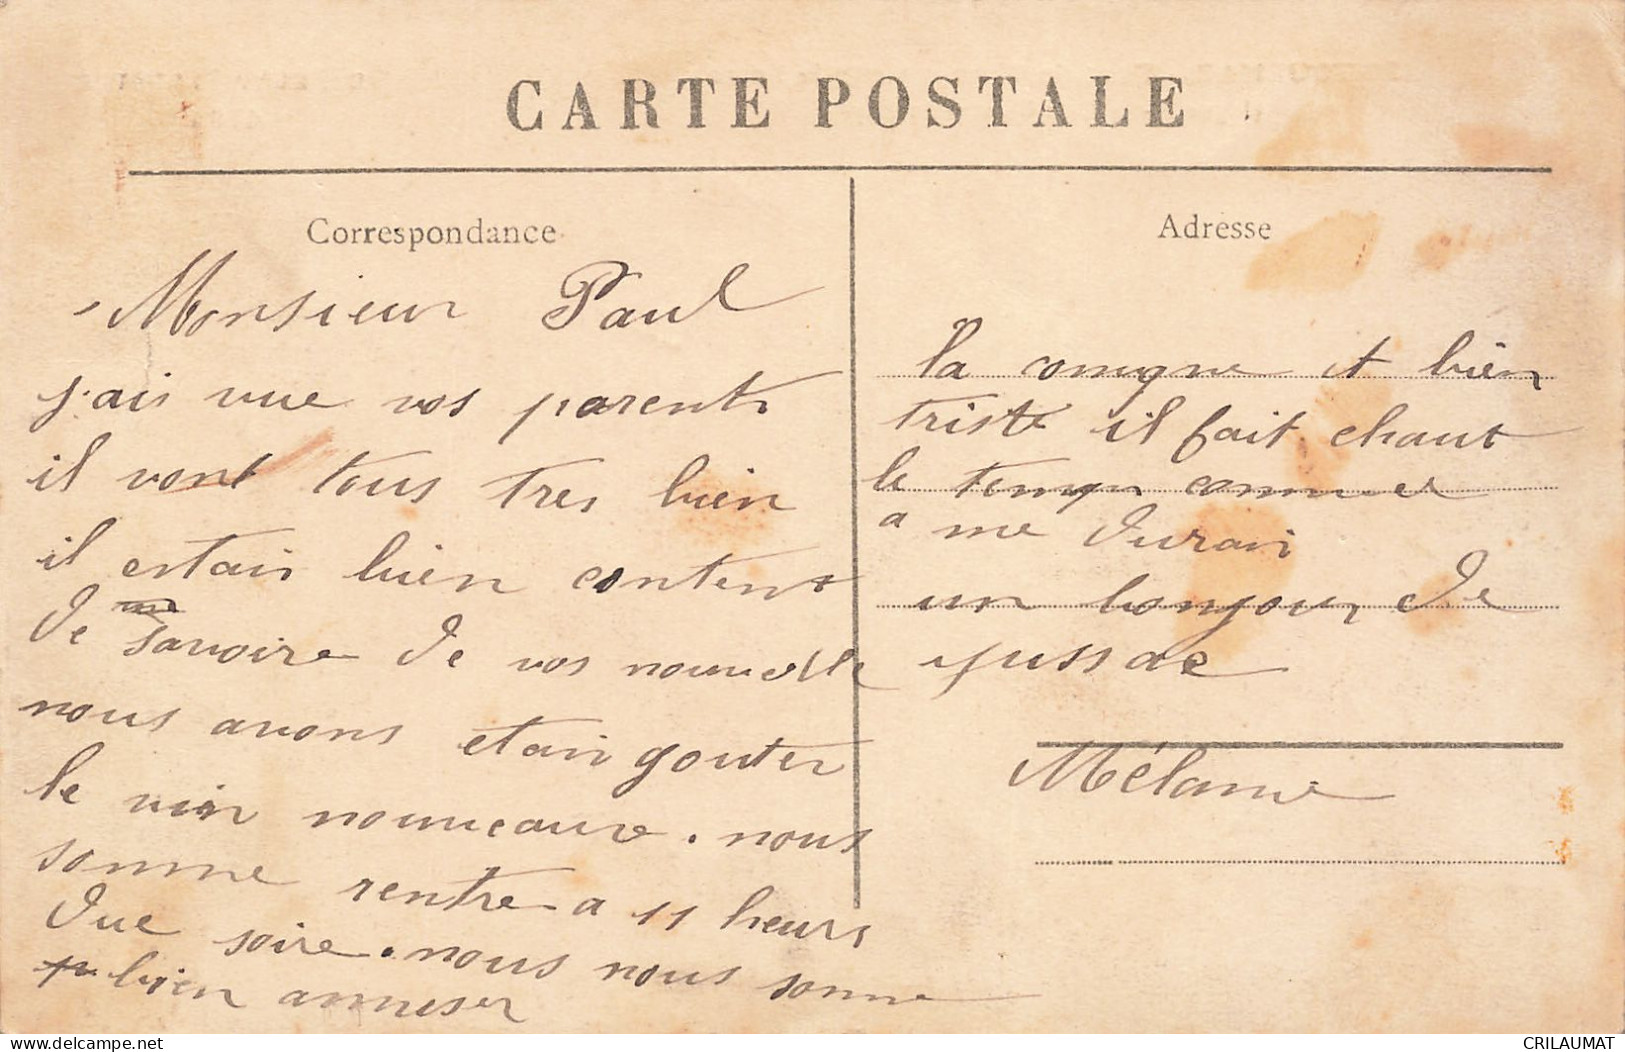 CARTE POSTALE
Correspondance
Monsieur Paul
j'ais vue vos parents
il vont tous tres bien
il estais bien content
de savoire de vos nouvelle
nous avons etais gouter
le vin nouveaure. nous
somme rentre a 11 heurs
due soire. nous nous somme
bien amuser
Adresse
la comigne et bien
triste il fait chaut
le temps comme
a me durai
un bonjour de
yussac
Mélanie
delcampe.net
CRILAUMAT